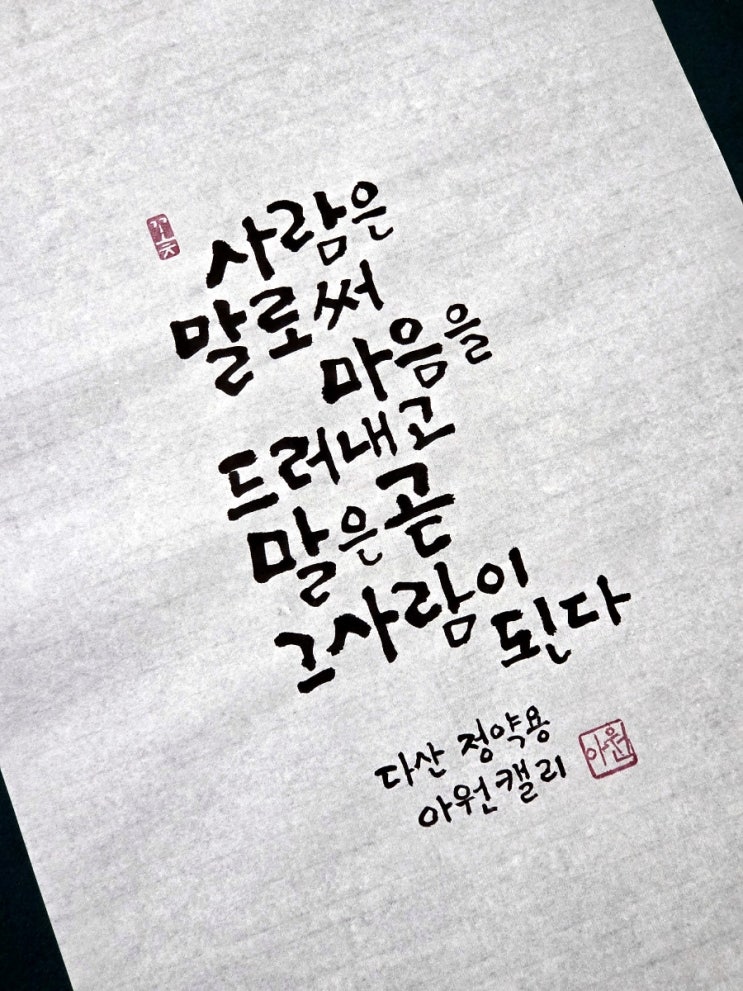 꽃
사람은
말로써
마음을
드러내고
말은 곧
그 사람이
된다
다산 정약용
아원캘리
아원